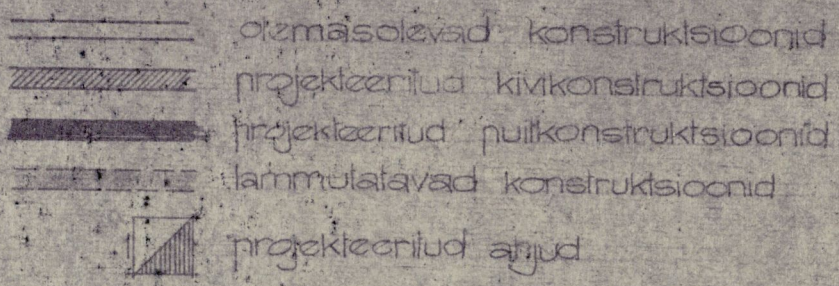 olemasolevad konstruktsioonid
projekteeritud kivikonstruktsioonid
projekteeritud puitkonstruktsioonid
lammutatavad konstruktsioonid
projekteeritud ahjud